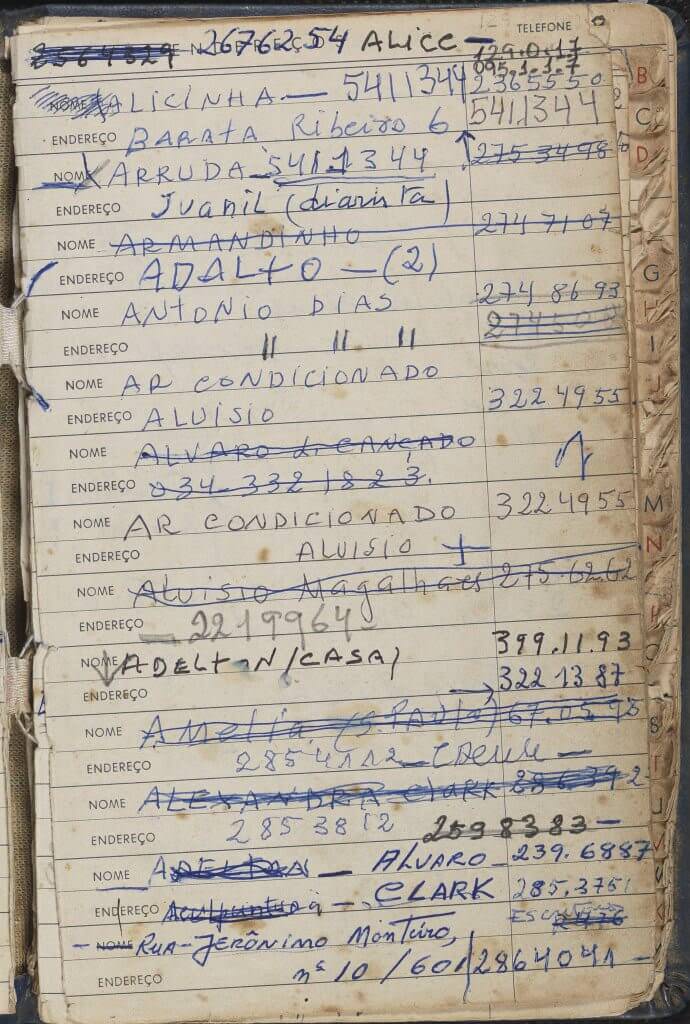 TELEFONE
2564329 2676254 ALICE — 129.0.17
095.1.1.7
NOME ALICINHA — 5411344 2365550
ENDEREÇO BARATA Ribeiro 6 5411344
NOME ARRUDA — 541.1344 2753498
ENDEREÇO Juanil (diarista)
NOME ARMANDINHO 2747107
ENDEREÇO ADALTO — (2)
NOME ANTONIO DIAS 2748693
ENDEREÇO " " "
NOME AR CONDICIONADO
ENDEREÇO ALUISIO 3224955
NOME ALVARO d. CANÇADO
ENDEREÇO 034-3321823.
NOME AR CONDICIONADO 3224955
ENDEREÇO ALUISIO +
NOME Aluisio Magalhaes 275.62.62
ENDEREÇO — 2219964 -
NOME ADELTON (CASA) 399.11.93
ENDEREÇO 3221387
NOME Amelia (S. PAulo) 67.05.95
ENDEREÇO 2854112
NOME ALEXANDRA Clark
ENDEREÇO 2853812 2598383 —
NOME — ALVARO — 239.6887
ENDEREÇO Acupuntura — CLARK 285.3751
NOME — RuA-JERÔNIMO MonteiRo,
ENDEREÇO nº 10 / 601 2864041 —
B
C
D
G
H
I
J
M
N